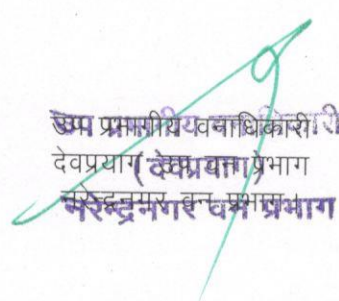 उप प्रभागीय वनाधिकारी
देवप्रयाग उप वन प्रभाग
नरेन्द्रनगर वन प्रभाग।
उप प्रभागीय वनाधिकारी
(देवप्रयाग)
नरेन्द्रनगर वन प्रभाग